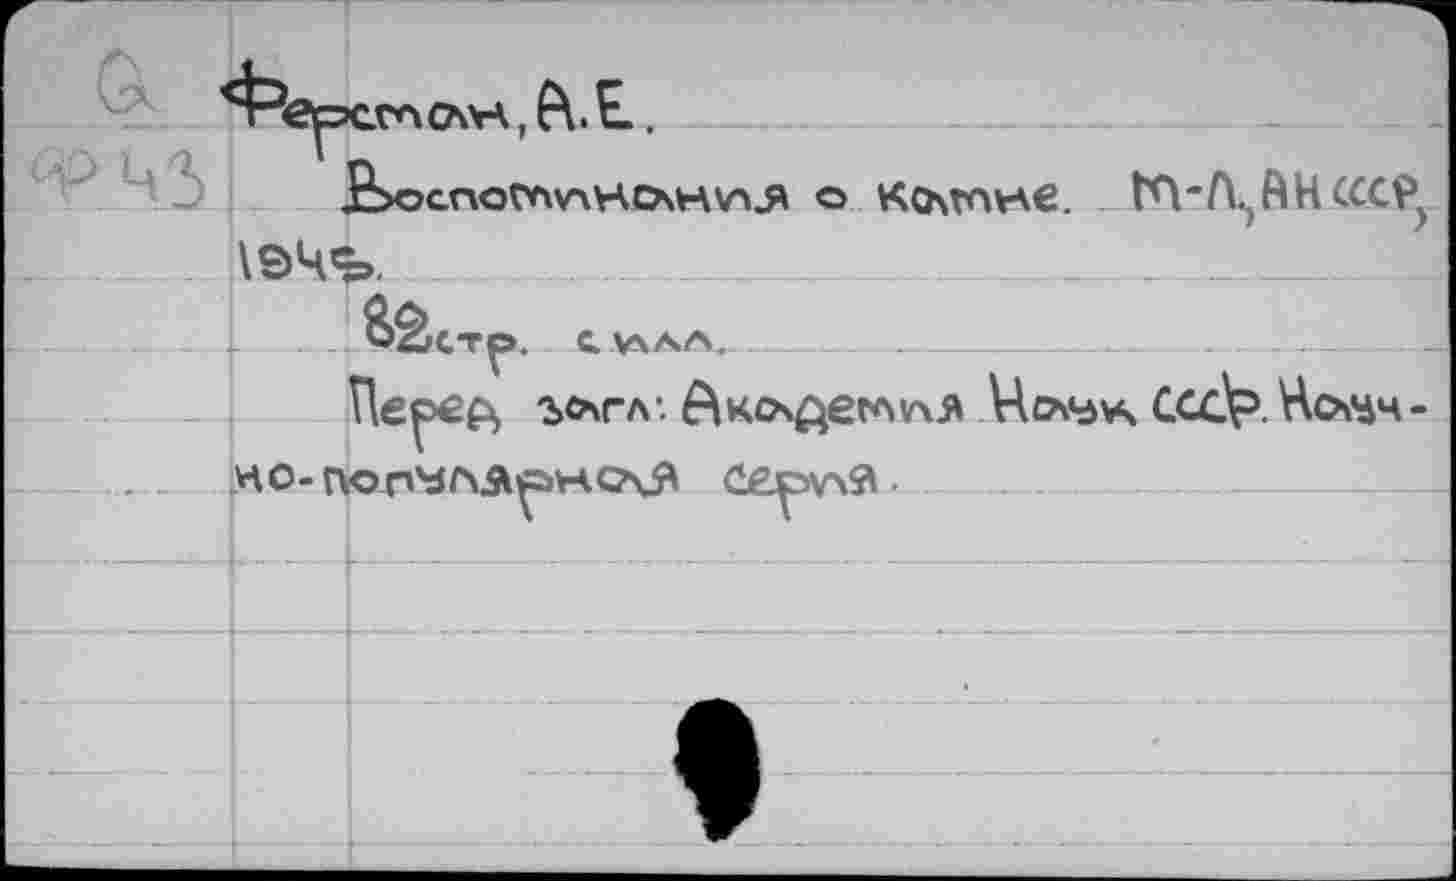 Ферсман, А.Е.
Ф 43 Воспоминания о камне. М-Л., АН СССР,
1945.
82 стр. с илл.
Перед загл: Академия Наук СССР. Науч-
но-популярная серия.